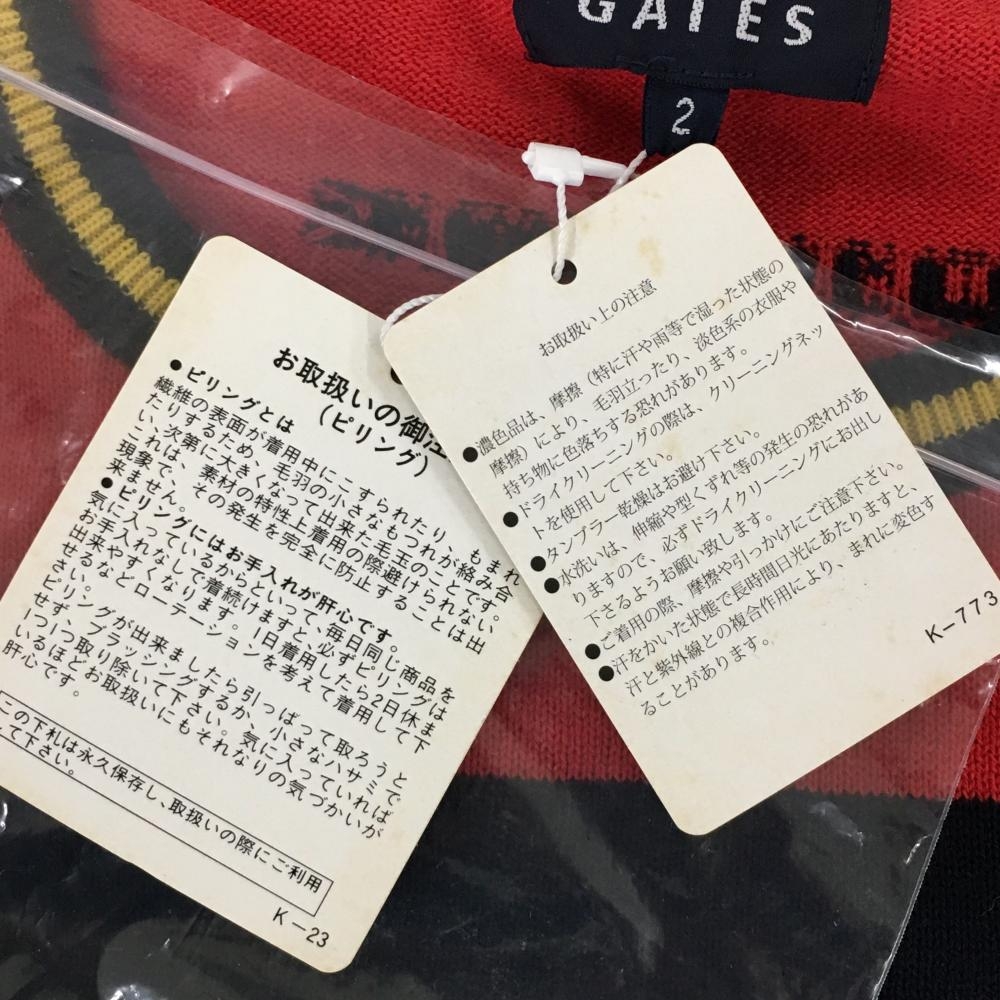 GATES
2
お取扱い上の注意
●濃色品は、摩擦（特に汗や雨等で湿った状態の
摩擦）により、毛羽立ったり、淡色系の衣服や
持ち物に色落ちする恐れがあります。
●ドライクリーニングの際は、クリーニングネッ
トを使用して下さい。
●タンブラー乾燥はお避け下さい。
●水洗いは、伸縮や型くずれ等の発生の恐れがあ
りますので、必ずドライクリーニングにお出し
下さるようお願い致します。
●ご着用の際、摩擦や引っかけにご注意下さい。
●汗をかいた状態で長時間日光にあたりますと、
汗と紫外線との複合作用により、まれに変色す
ることがあります。
K-773
お取扱いの御注
（ピリング）
●ピリングとは
繊維の表面が着用中にこすられたり、もまれ
たりするため、毛羽の小さなもつれが絡み合
い、次第に大きくなって出来た毛玉のことです。
これは、素材の特性上着用の際避けられない
現象で、その発生を完全に防止することは出
来ません。
●ピリングにはお手入れが肝心です。
気に入っているからといって、毎日同じ商品を
お手入れなしで着続けますと、必ずピリングは
出来やすくなります。1日着用したら2日休ま
せるなどローテーションを考えて着用して下
さい。
ピリングが出来ましたら引っぱって取ろうと
せず、ブラッシングするか、小さなハサミで
1つ1つ取り除いて下さい。気に入っていれば
いるほどお取扱いにもそれなりの気づかいが
肝心です。
この下札は永久保存し、取扱いの際にご利用
して下さい。
K-23